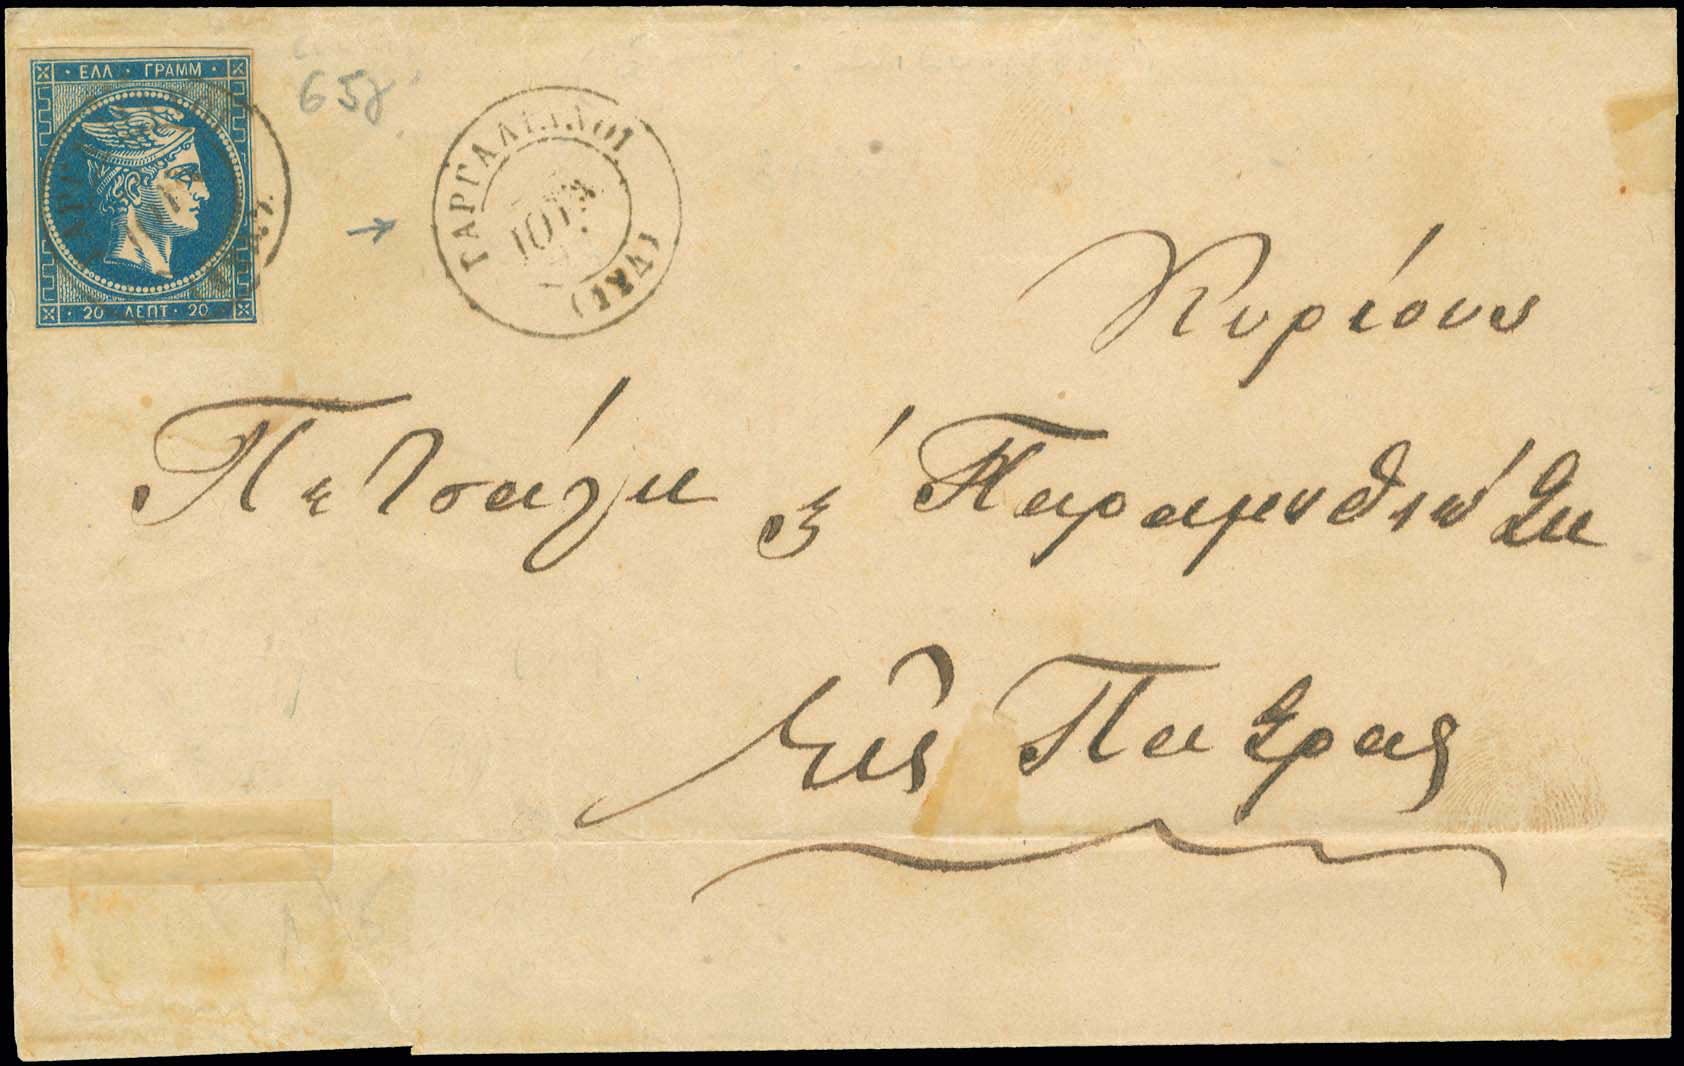 · ΕΛΛ · ΓΡΑΜΜ ·
· 20 · ΛΕΠΤ · 20 ·
65γ
ΓΑΡΓΑΛΙΑΝΟΙ
ΙΟΥΛ
Κυρίους
Πετσάλη & Παραμυθιώ
Εἰς Πατρας